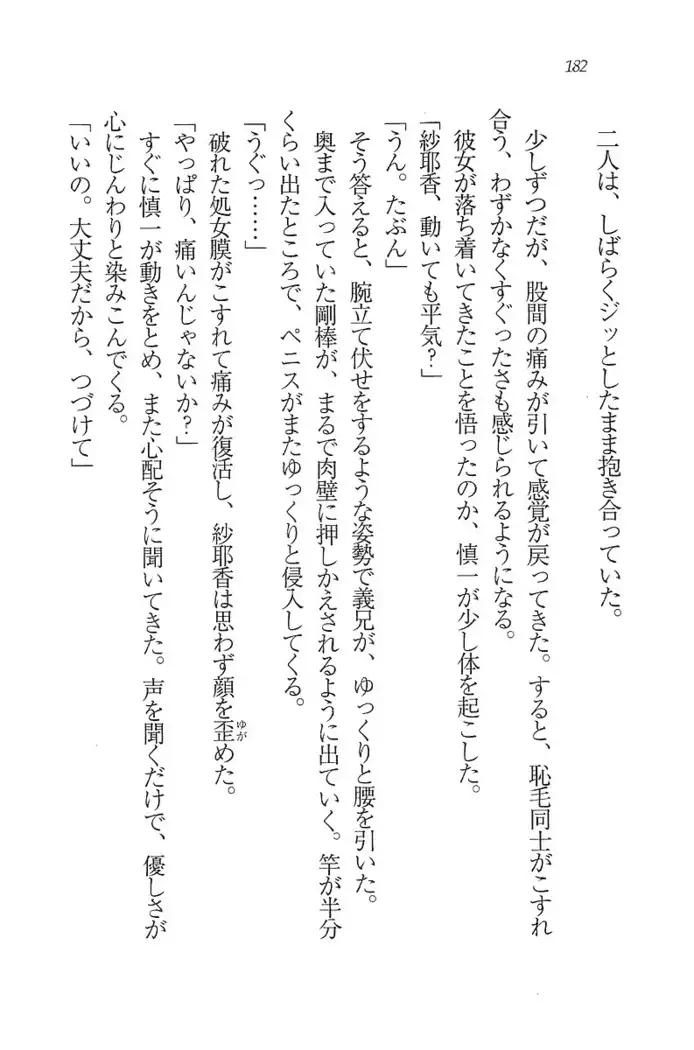 182
二人は、しばらくジッとしたまま抱き合っていた。
少しずつだが、股間の痛みが引いて感覚が戻ってきた。すると、恥毛同士がこすれ
合う、わずかなくすぐったさも感じられるようになる。
彼女が落ち着いてきたことを悟ったのか、慎一が少し体を起こした。
「紗耶香、動いても平気？」
「うん。たぶん」
そう答えると、腕立て伏せをするような姿勢で義兄が、ゆっくりと腰を引いた。
奥まで入っていた剛棒が、まるで肉壁に押しかえされるように出ていく。竿が半分
くらい出たところで、ペニスがまたゆっくりと侵入してくる。
「うぐっ……」
破れた処女膜がこすれて痛みが復活し、紗耶香は思わず顔を歪めた。
ゆが
「やっぱり、痛いんじゃないか？」
すぐに慎一が動きをとめ、また心配そうに聞いてきた。声を聞くだけで、優しさが
心にじんわりと染みこんでくる。
「いいの。大丈夫だから、つづけて」